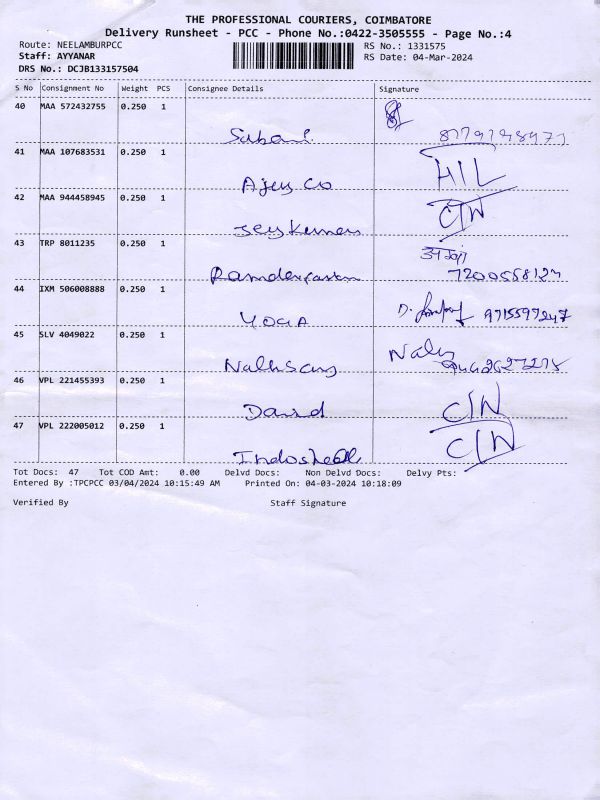 THE PROFESSIONAL COURIERS, COIMBATORE
Delivery Runsheet - PCC - Phone No.:0422-3505555 - Page No.:4
Route: NEELAMBURPCC RS No.: 1331575
Staff: AYYANAR RS Date: 04-Mar-2024
DRS No.: DCJB133157504
S No Consignment No Weight PCS Consignee Details Signature
40 MAA 572432755 0.250 1
41 MAA 107683531 0.250 1
Ajey Co HIL
42 MAA 944458945 0.250 1
C/N
43 TRP 8011235 0.250 1
44 IXM 506008888 0.250 1
YOGA 9715597247
45 SLV 4049022 0.250 1
46 VPL 221455393 0.250 1
David C/N
47 VPL 222005012 0.250 1
Indoshell C/N
Tot Docs: 47 Tot COD Amt: 0.00 Delvd Docs: Non Delvd Docs: Delvy Pts:
Entered By :TPCPCC 03/04/2024 10:15:49 AM Printed On: 04-03-2024 10:18:09
Verified By Staff Signature